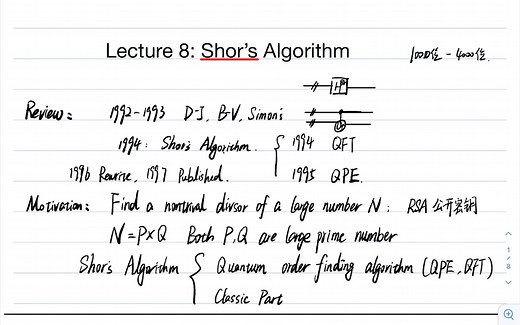 Lecture 8: Shor's Algorithm
1000位 - 4000位.
H
Review: 1992-1993 D-J, B-V, Simon's
1994: Shor's Algorithm. { 1994 QFT
1996 Rewrite, 1997 Published. 1995 QPE.
Motivation: Find a nontrival divsor of a large number N: RSA 公开密钥
N = P×Q Both P, Q are large prime number
Shor's Algorithm { Quantum order finding algorithm (QPE, QFT)
Classic Part
1
/
8